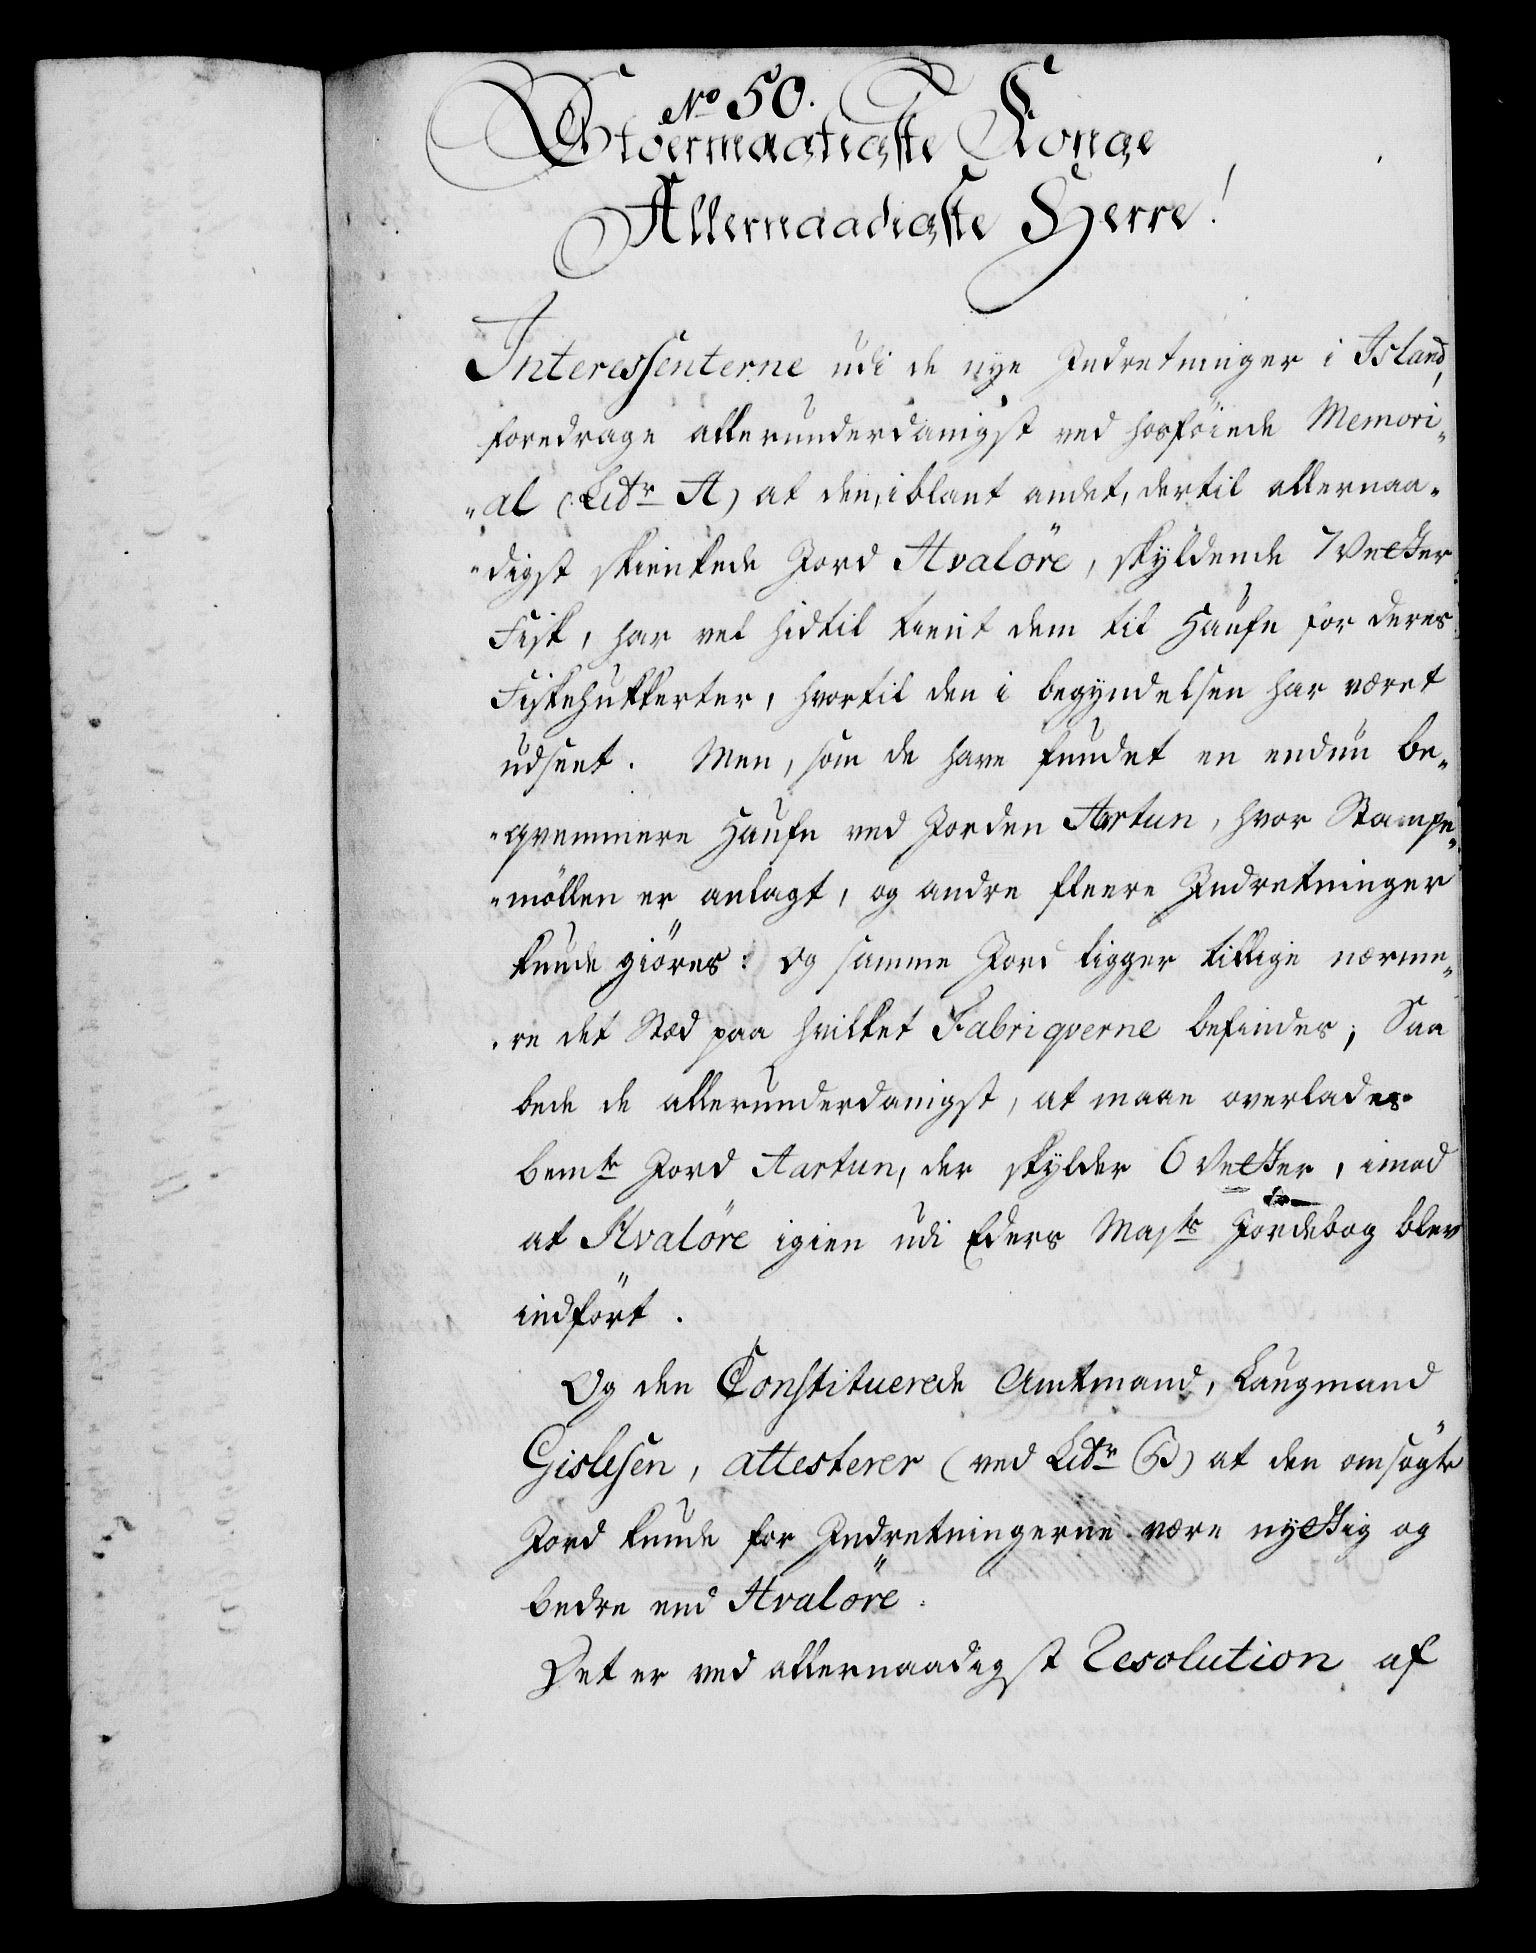 No 50.
Stoermægtigste Konge
Allernaadigste Herre!
Interessenterne udi de nye Indretninger i Island,
foredrage allerunderdanigst ved hosföiede Memori„
„al (Litr A) at den, iblant andet, dertil allernaa„
„digst skienkede Jord Hvalöre, skyldende 7 Vetter
Fisk, har vel hidtil tient dem til Haufn for deres
Fiskehukkerter, hvortil den i begyndelsen har været
udseet. Men, som de have fundet en endnu be„
„qvemmere Haufn ved Jorden Artun, hvor Stampe„
„möllen er anlagt, og andre fleere Indretninger
kunde giöres: Og samme Jord ligger tillige nærme„
„re det Stæd paa hvilket Fabriqverne befindes; Saa
bede de allerunderdanigst, at maae overlades
bemte Jord Aartun, der skylder 6 Vetter, imod
at Hvalöre igien udi Eders Majts Jordebog blev
indfört.
Og den Constituerede Amtmand, Laugmand
Gislesen, attesterer (ved Litr B) at den omsögte
Jord kunde for Indretningerne være nyttig og
bedre end Hvalöre.
Det er ved allernaadigst Resolution af